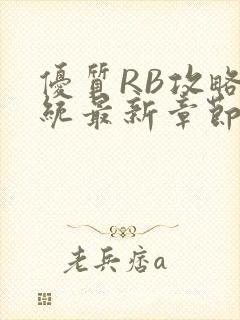 優質RB攻略
統最新章節
老兵痞a